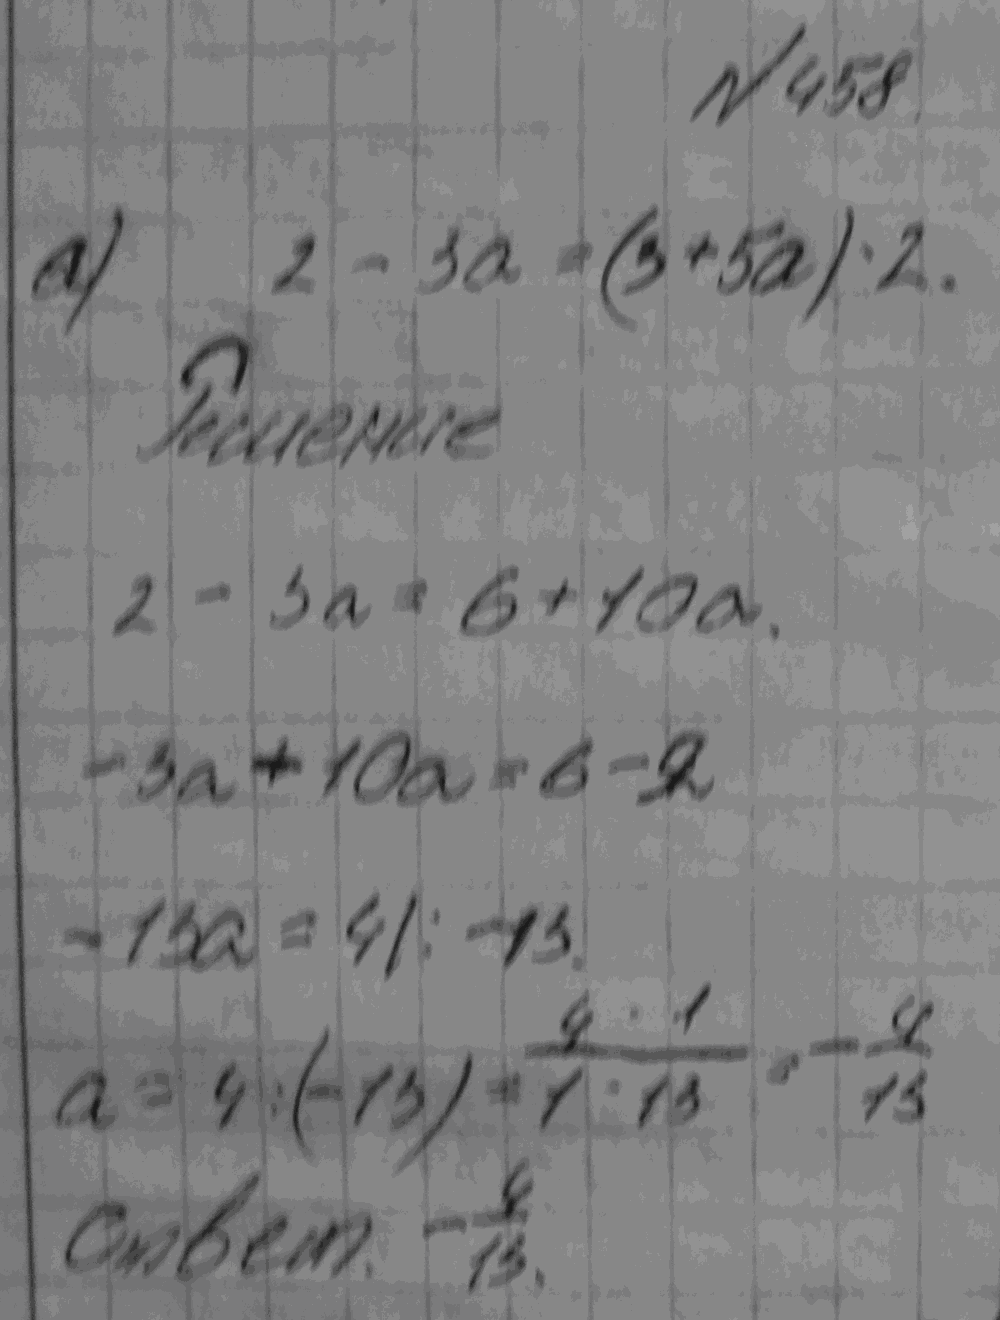 №458.
а) 2 - 3а = (3+5а)·2.
Решение
2 - 3а = 6+10а.
-3а+10а = 6-2
-13а = 4|: -13.
а = 4:(-13) = 4·1/1·13 = -4/13
Ответ. -4/13.